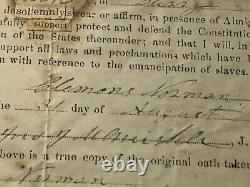 do solemnly swear or affirm, in presence of Alm
fully support protect and defend the Constitution
n of the States thereunder; and that I will, in
upport all laws and proclamations which have
n with reference to the emancipation of slaves
Clemons Norman
the day of August
, J.
above is a true copy of the original oath taken